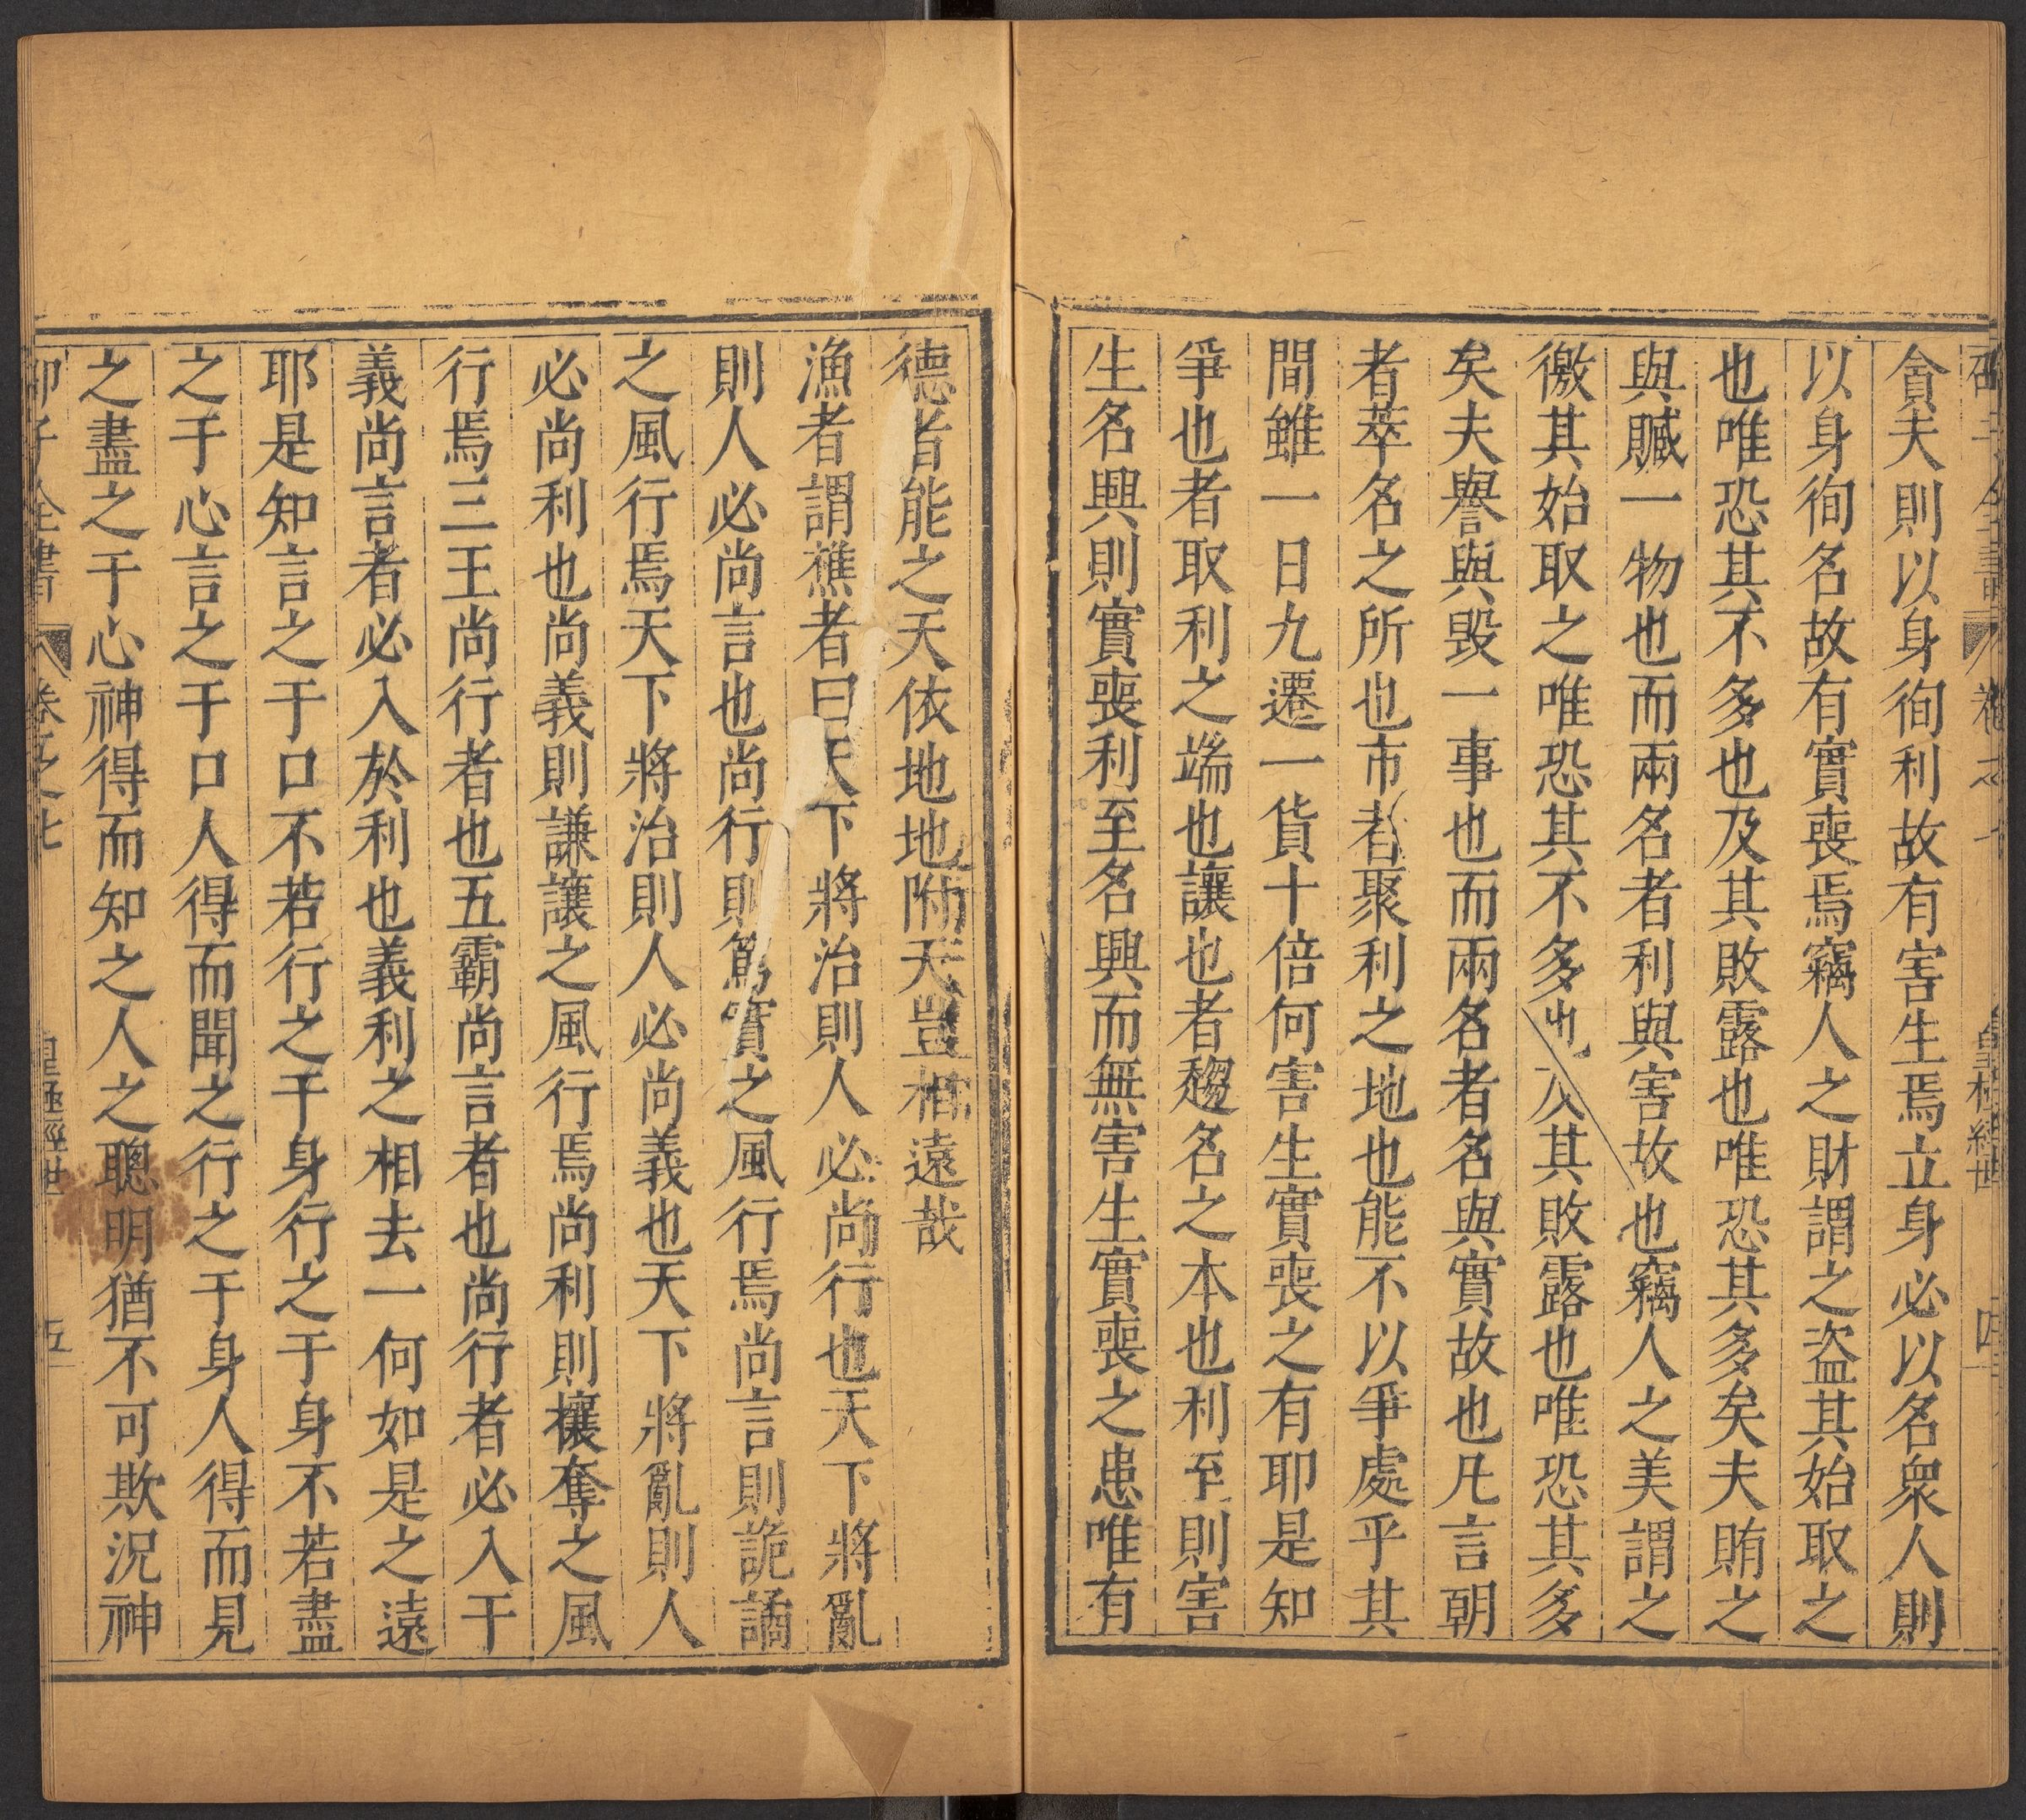 貪夫則以身徇利故有害生焉立身必以名衆人則
以身徇名故有實喪焉竊人之財謂之盜其始取之
也唯恐其不多也及其敗露也唯恐其多矣夫賄之
與贓一物也而兩名者利與害故也竊人之美謂之
徼其始取之唯恐其不多也及其敗露也唯恐其多
矣夫譽與毀一事也而兩名者名與實故也凡言朝
者萃名之所也市者聚利之地也能不以爭處乎其
間雖一日九遷一貨十倍何害生實喪之有耶是知
爭也者取利之端也讓也者趨名之本也利至則害
生名興則實喪利至名興而無害生實喪之患唯有
德者能之天依地地附天豈相遠哉
漁者謂樵者曰天下將治則人必尚行也天下將亂
則人必尚言也尚行則篤實之風行焉尚言則詭譎
之風行焉天下將治則人必尚義也天下將亂則人
必尚利也尚義則謙讓之風行焉尚利則攘奪之風
行焉三王尚行者也五霸尚言者也尚行者必入于
義尚言者必入於利也義利之相去一何如是之遠
耶是知言之于口不若行之于身行之于身不若盡
之于心言之于口人得而聞之行之于身人得而見
之盡之于心神得而知之人之聰明猶不可欺況神
邵子全書 卷五之七 皇極經世 五